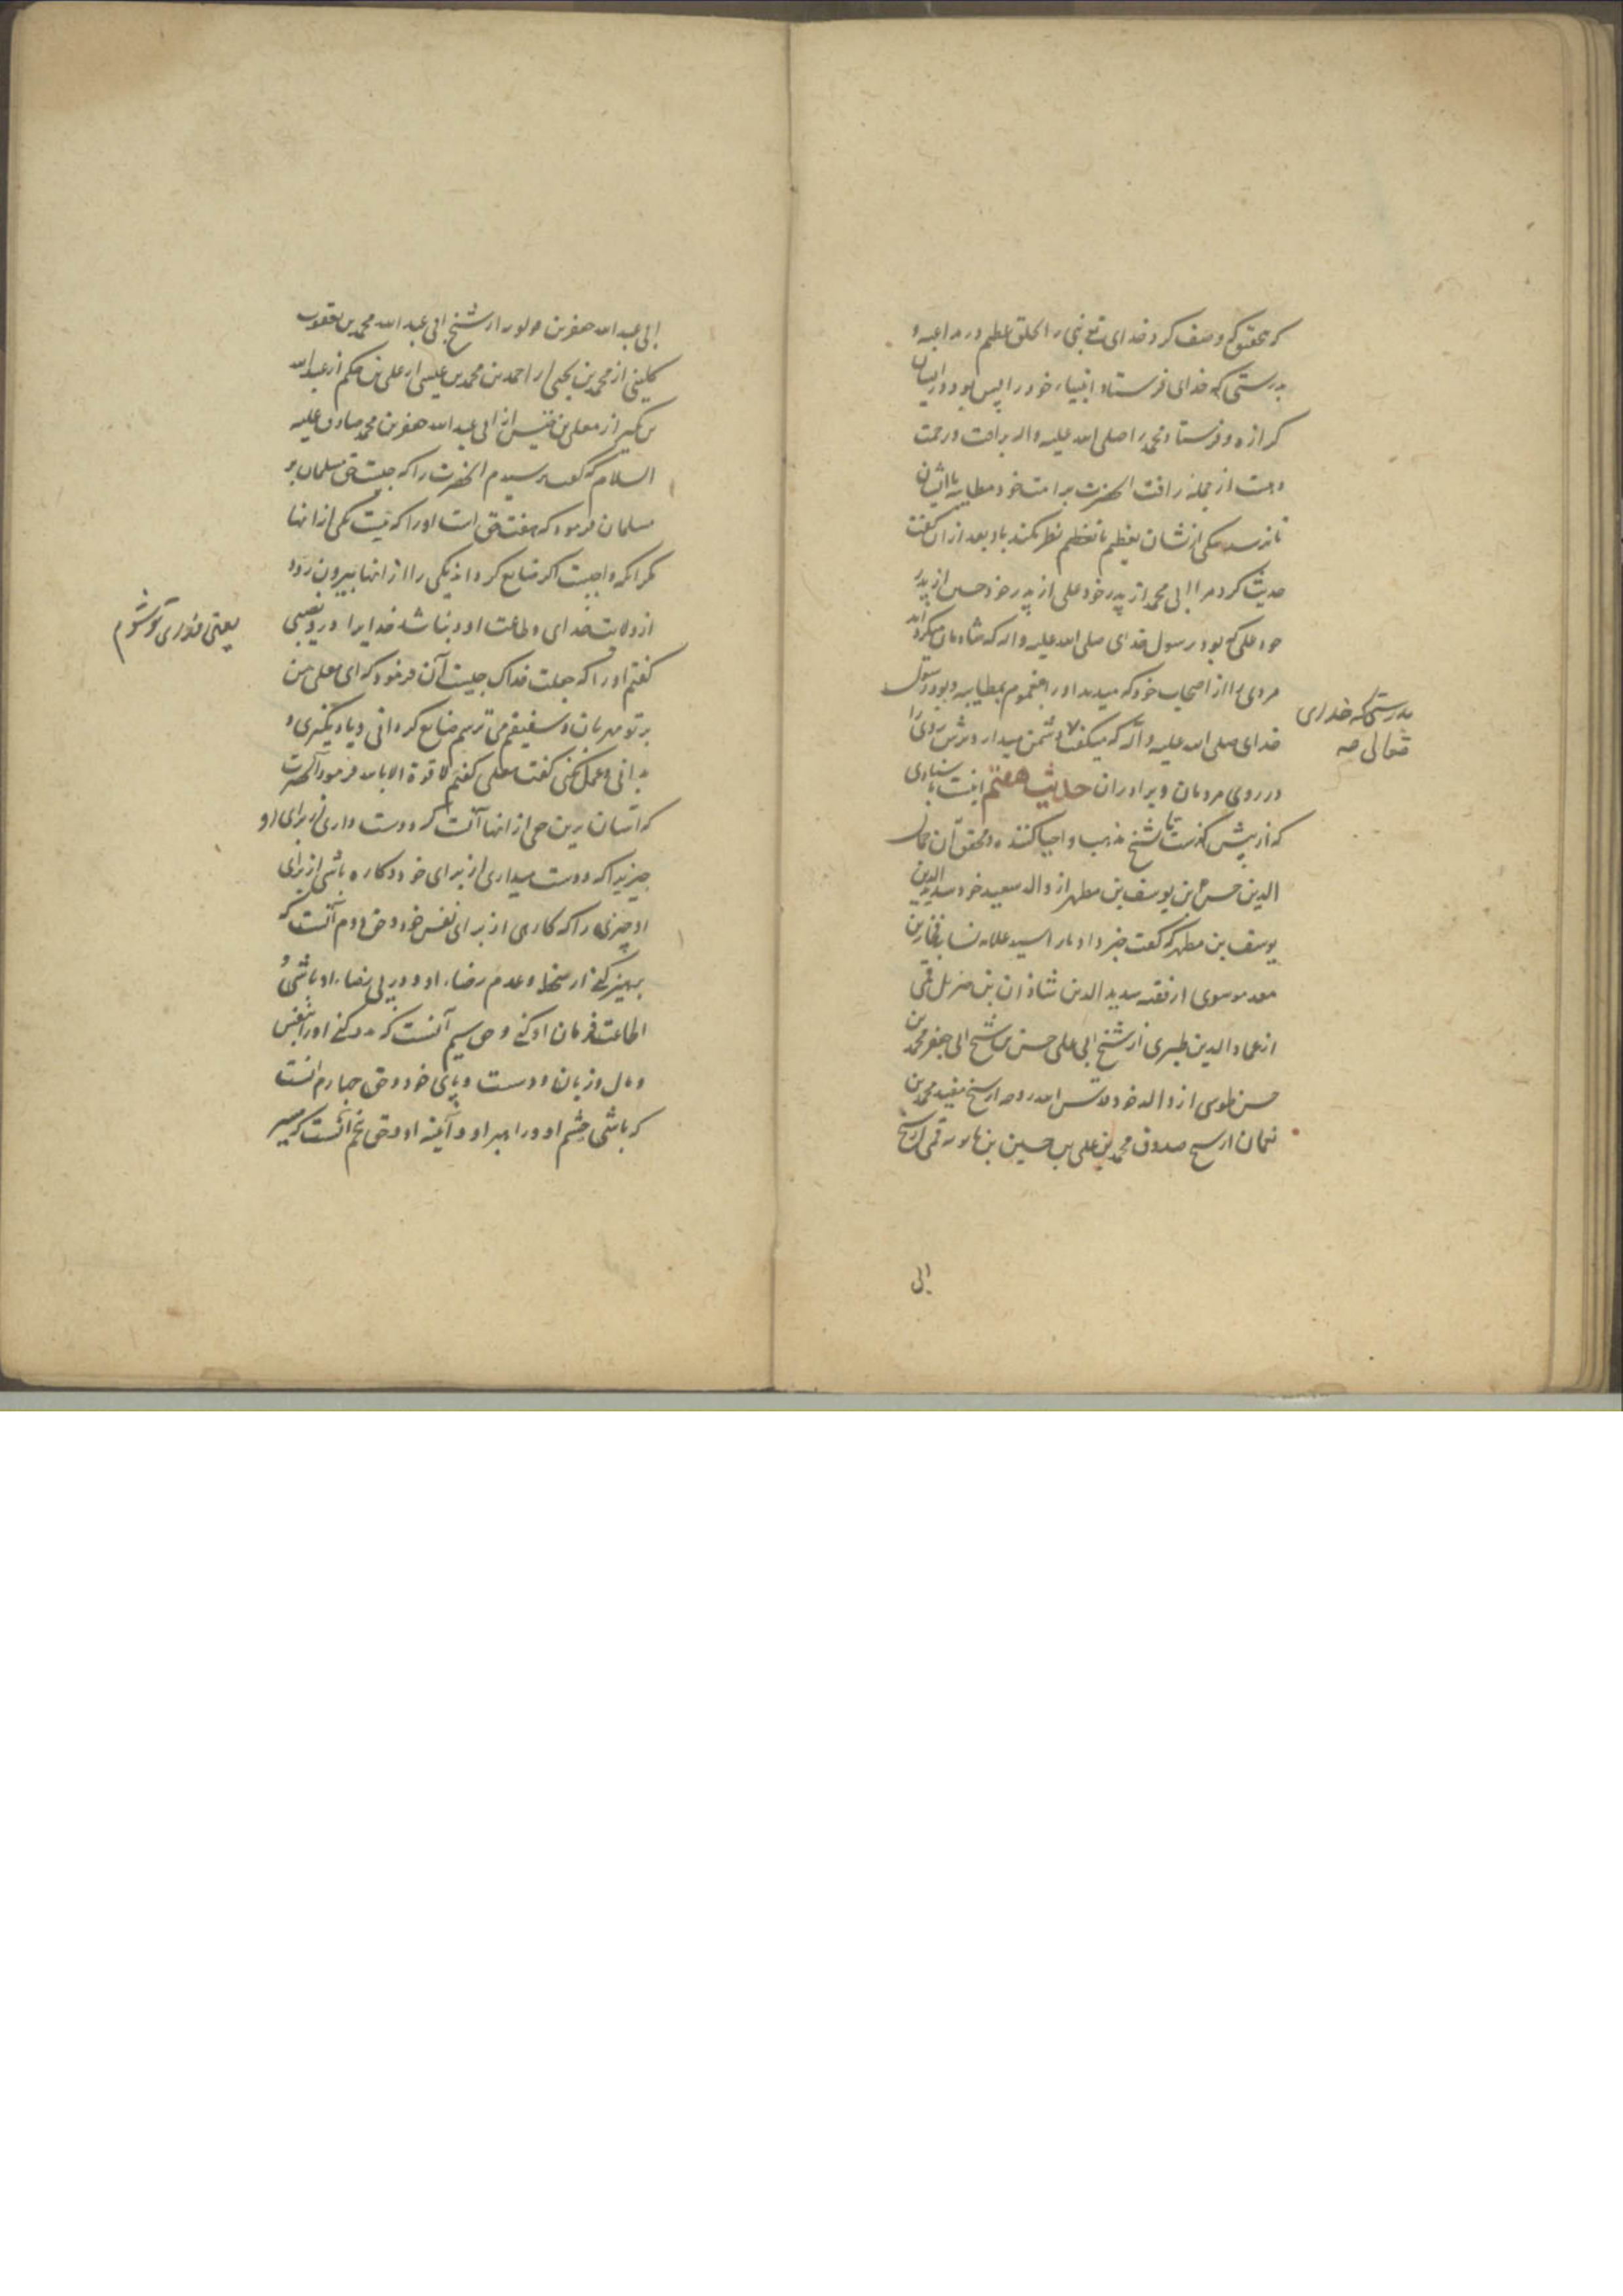 که بتحقیق که وصف کرد خدای تع نبی را بخلق عظیم در مداعبه و
بدرستی که خدای فرستاد انبیاء خود را پس بود در ایشان
کزازه و فرستاد محمد را صلی الله علیه واله برأفت و رحمت
و هست از جمله رأفت الحضرت بر امت خود مطایبه با ایشان
تا نرسد یکی از نشان تعظیم تا نظر نکند باو بعد از ان گفت
حدیث کرد مرا ابی محمد از پدر خود علی از پدر خود حسین از پدر
خود علی که بود رسول خدای صلی الله علیه واله که شادمان میکردانید
مردی را از اصحاب خود که میدید او را مغموم بمطایبه و بود رسول
خدای صلی الله علیه وآله که میکفت دشمن میدارد ترش روی را
در روی مردمان و برادران حدیث هفتم اینست باسنادی
بدرستیکه خدای
تعالی صه
که از پیش کذشت تا شیخ مذهب و احیا کننده و محقق آن جمال
الدین حسن بن یوسف بن مطهر از والد سعید خود سدید الدین
یوسف بن مطهر که کفت خبر داد ما را السید علامه نسابه فخار بن
معد موسوی از فقیه سدید الدین شاذان بن جبرئیل قمی
از عماد الدین طبری از شیخ ابی علی حسن بن شیخ ابی جعفر محمد بن
حسن طوسی از والد خود قدس الله روحه از شیخ مفید محمد بن
نعمان از شیخ صدوق محمد بن علی بن حسین بن بابویه قمی از شیخ
ابی
ابی عبد الله جعفر بن قولویه از شیخ ابی عبد الله محمد بن یعقوب
کلینی از محمد بن یحیی از احمد بن محمد بن عیسی از علی بن حکم از عبد الله
بن بکیر از معلی بن خنیس از ابی عبد الله جعفر بن محمد صادق علیه
السلام که گفت پرسیدم الحضرت را که چیست حق مسلمان بر
مسلمان فرمود که هفت حق است او را که نیست یکی از انها
مگر انکه واجبست اکر ضایع کرداند یکی را از انها بیرون رود
از ولایت خدای و طاعت او و نباشد خدایرا در و نصیبی
یعنی فدای تو شوم
کفتم او را که جعلت فداک چیست آن فرمود که ای معلی من
بر تو مهربان و شفیقم می ترسم ضایع کردانی و یاد نگیری و
بدانی و عمل نکنی کفت معلی کفتم لا قوة الا بالله فرمود آنحضرت
که آسان ترین حق از انها آنست که دوست داری از برای او
چیزیرا که دوست میداری از برای خود و کاره باشی از برای
او چیزی را که کارهی از برای نفس خود و حق دوم آنست که
بپرهیز کنی از سخط و عدم رضاء او و در پی رضاء او باشی و
اطاعت فرمان او کنی و حق سیم آنست که مدد کنی او را بنفس
و مال و زبان و دست و پای خود و حق چهارم انست
که باشی چشم او و راهبر او و آینه او و حق پنجم انست که سیر